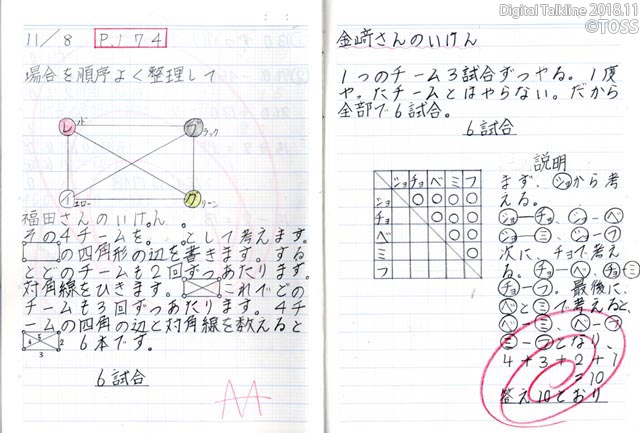 Digital Talkline 2018.11
©TOSS
11/8 P.174
場合を順序よく整理して
レ ッド
ブ ラック
イ エロー
グ リーン
福田さんのいけん。
その4チームを。。。として考えます。
の四角形の辺を書きます。する
とどのチームも2回ずつあたります。
対角線をひきます。これでどの
チームも3回ずつあたります。4チ
ームの四角の辺と対角線を数えると
6本です。
1
2
3
4
5
6試合
AA
金﨑さんのいけん
1つのチーム3試合ずつやる。1度
やったチームとはやらない。だから
全部で6試合。
6試合
ショ チョ ベ ミ フ
ショ ○ ○ ○ ○
チョ ○ ○ ○
ベ ○ ○
ミ ○
フ
説明
まず、ショから考
える。
ショーチョ、ショーベ
ショーミ、ショーフ
次に、チョで考え
る。チョーベ、チョーミ
チョーフ。最後に、
ベとミで考えると、
ベーミ、ベーフ
ミーフとなり、
4+3+2+1
=10
答え10とおり